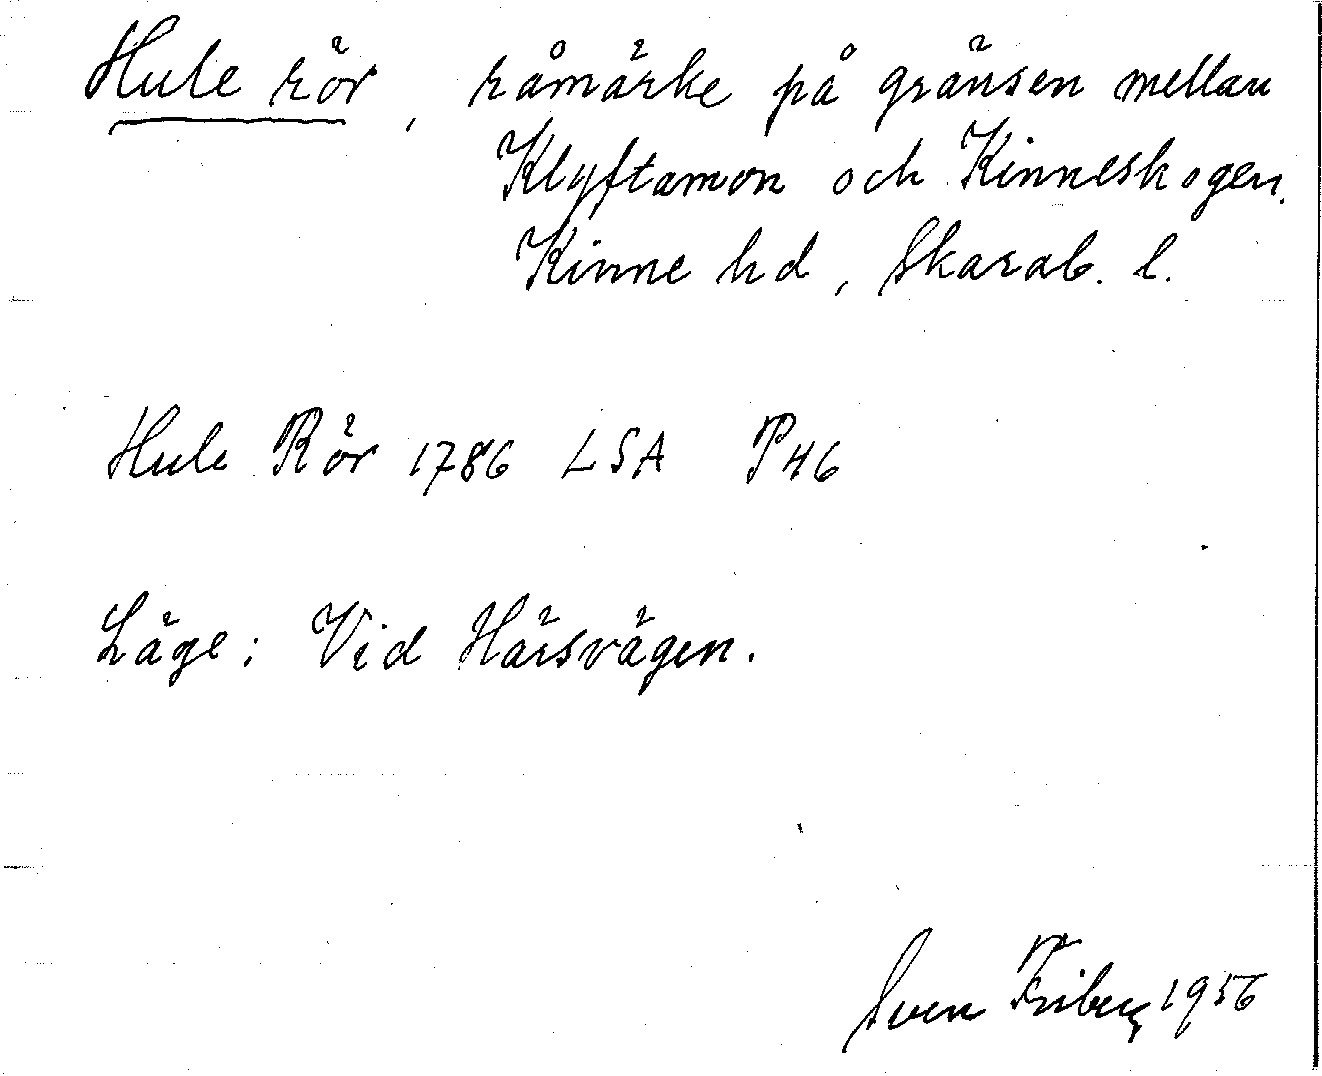 Hule rör, råmärke på gränsen mellan
Klyftamon och Kinneskogen.
Kinne hd, Skarab. l.
Hule Rör 1786 LSA P46
Läge: Vid Härsvägen.
Sven Friberg 1956